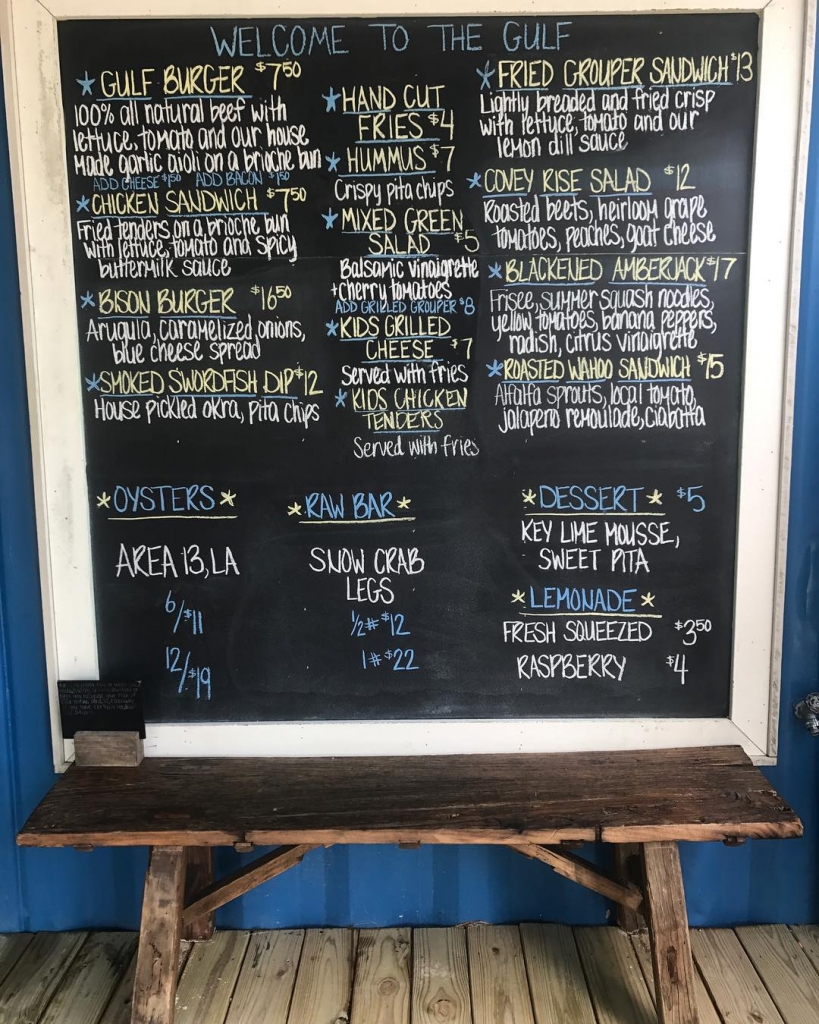 WELCOME TO THE GULF
GULF BURGER $7.50
100% all natural beef with
lettuce, tomato and our house
made garlic aioli on a brioche bun
ADD CHEESE $1.50 ADD BACON $1.50
CHICKEN SANDWICH $7.50
Fried tenders on a brioche bun
with lettuce, tomato and spicy
buttermilk sauce
BISON BURGER $16.50
Arugula, caramelized onions,
blue cheese spread
SMOKED SWORDFISH DIP $12
House pickled okra, pita chips
HAND CUT
FRIES $4
HUMMUS $7
Crispy pita chips
MIXED GREEN
SALAD $5
Balsamic vinaigrette
+ cherry tomatoes
ADD GRILLED GROUPER $8
KIDS GRILLED
CHEESE $7
Served with fries
KIDS CHICKEN
TENDERS
Served with fries
FRIED GROUPER SANDWICH $13
Lightly breaded and fried crisp
with lettuce, tomato and our
lemon dill sauce
COVEY RISE SALAD $12
Roasted beets, heirloom grape
tomatoes, peaches, goat cheese
BLACKENED AMBERJACK $17
Frisee, summer squash noodles,
yellow tomatoes, banana peppers,
radish, citrus vinaigrette
ROASTED WAHOO SANDWICH $15
Alfalfa sprouts, local tomato,
jalapeno remoulade, ciabatta
OYSTERS
AREA 13, LA
6/$11
12/$19
RAW BAR
SNOW CRAB
LEGS
1/2# $12
1# $22
DESSERT $5
KEY LIME MOUSSE,
SWEET PITA
LEMONADE
FRESH SQUEEZED $3.50
RASPBERRY $4